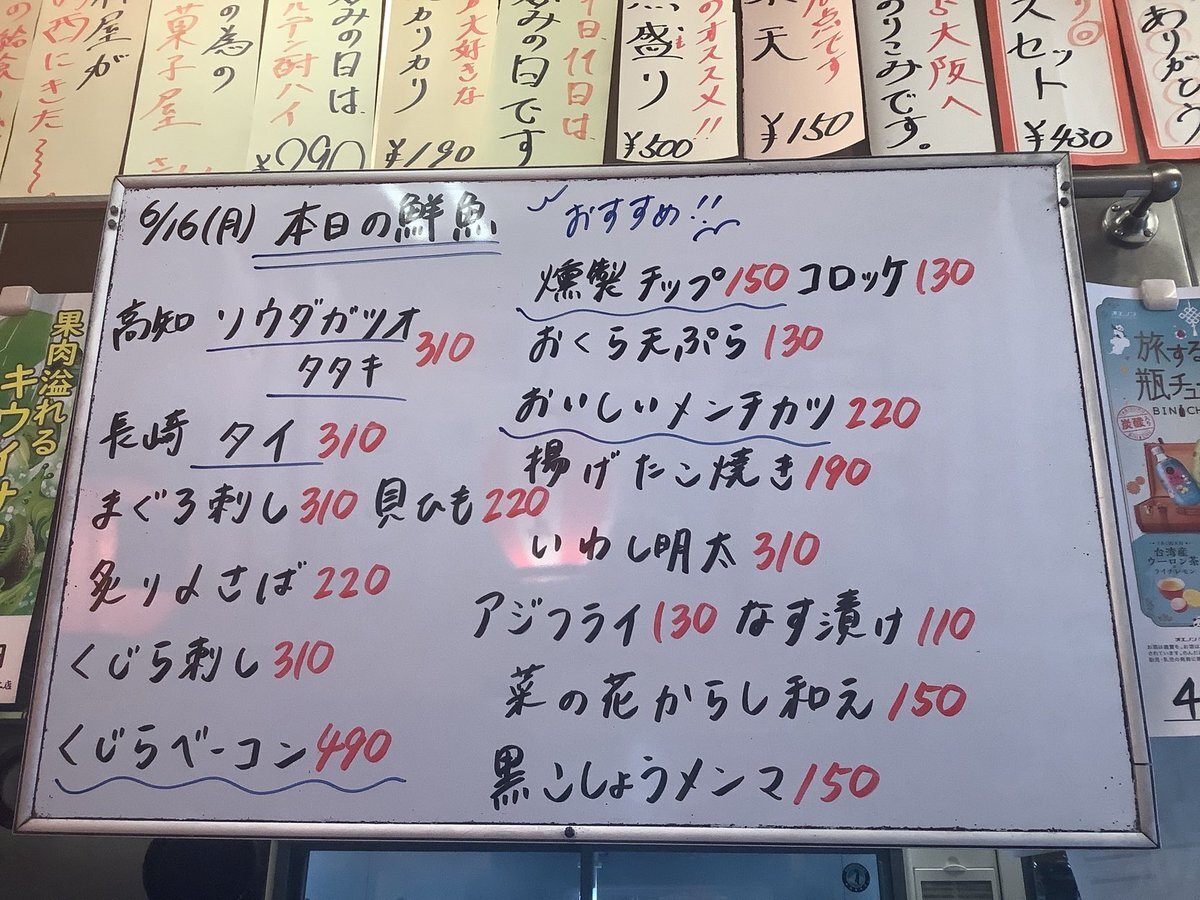 屋が
西にきた
の為の
菓子屋
好みの日は
酎ハイ
¥290
大好きな
カリカリ
¥190
11日は
好みの日です
のオススメ!!
盛り
¥500
点です
天
¥150
大阪へ
のりこみです。
スセット
¥430
ありがとう
6/16(月) 本日の鮮魚
おすすめ!!
高知 ソウダガツオ
タタキ 310
長崎 タイ 310
まぐろ刺し 310 貝ひも 220
炙り〆さば 220
くじら刺し 310
くじらベーコン 490
燻製チップ 150 コロッケ 130
おくら天ぷら 130
おいしいメンチカツ 220
揚げたこ焼き 190
いわし明太 310
アジフライ 130 なす漬け 110
菜の花からし和え 150
黒こしょうメンマ 150
果肉溢れる
キウイサワ
旅する
瓶チュ
BIN
炭酸入り
台湾産
ウーロン茶
ライチレモン